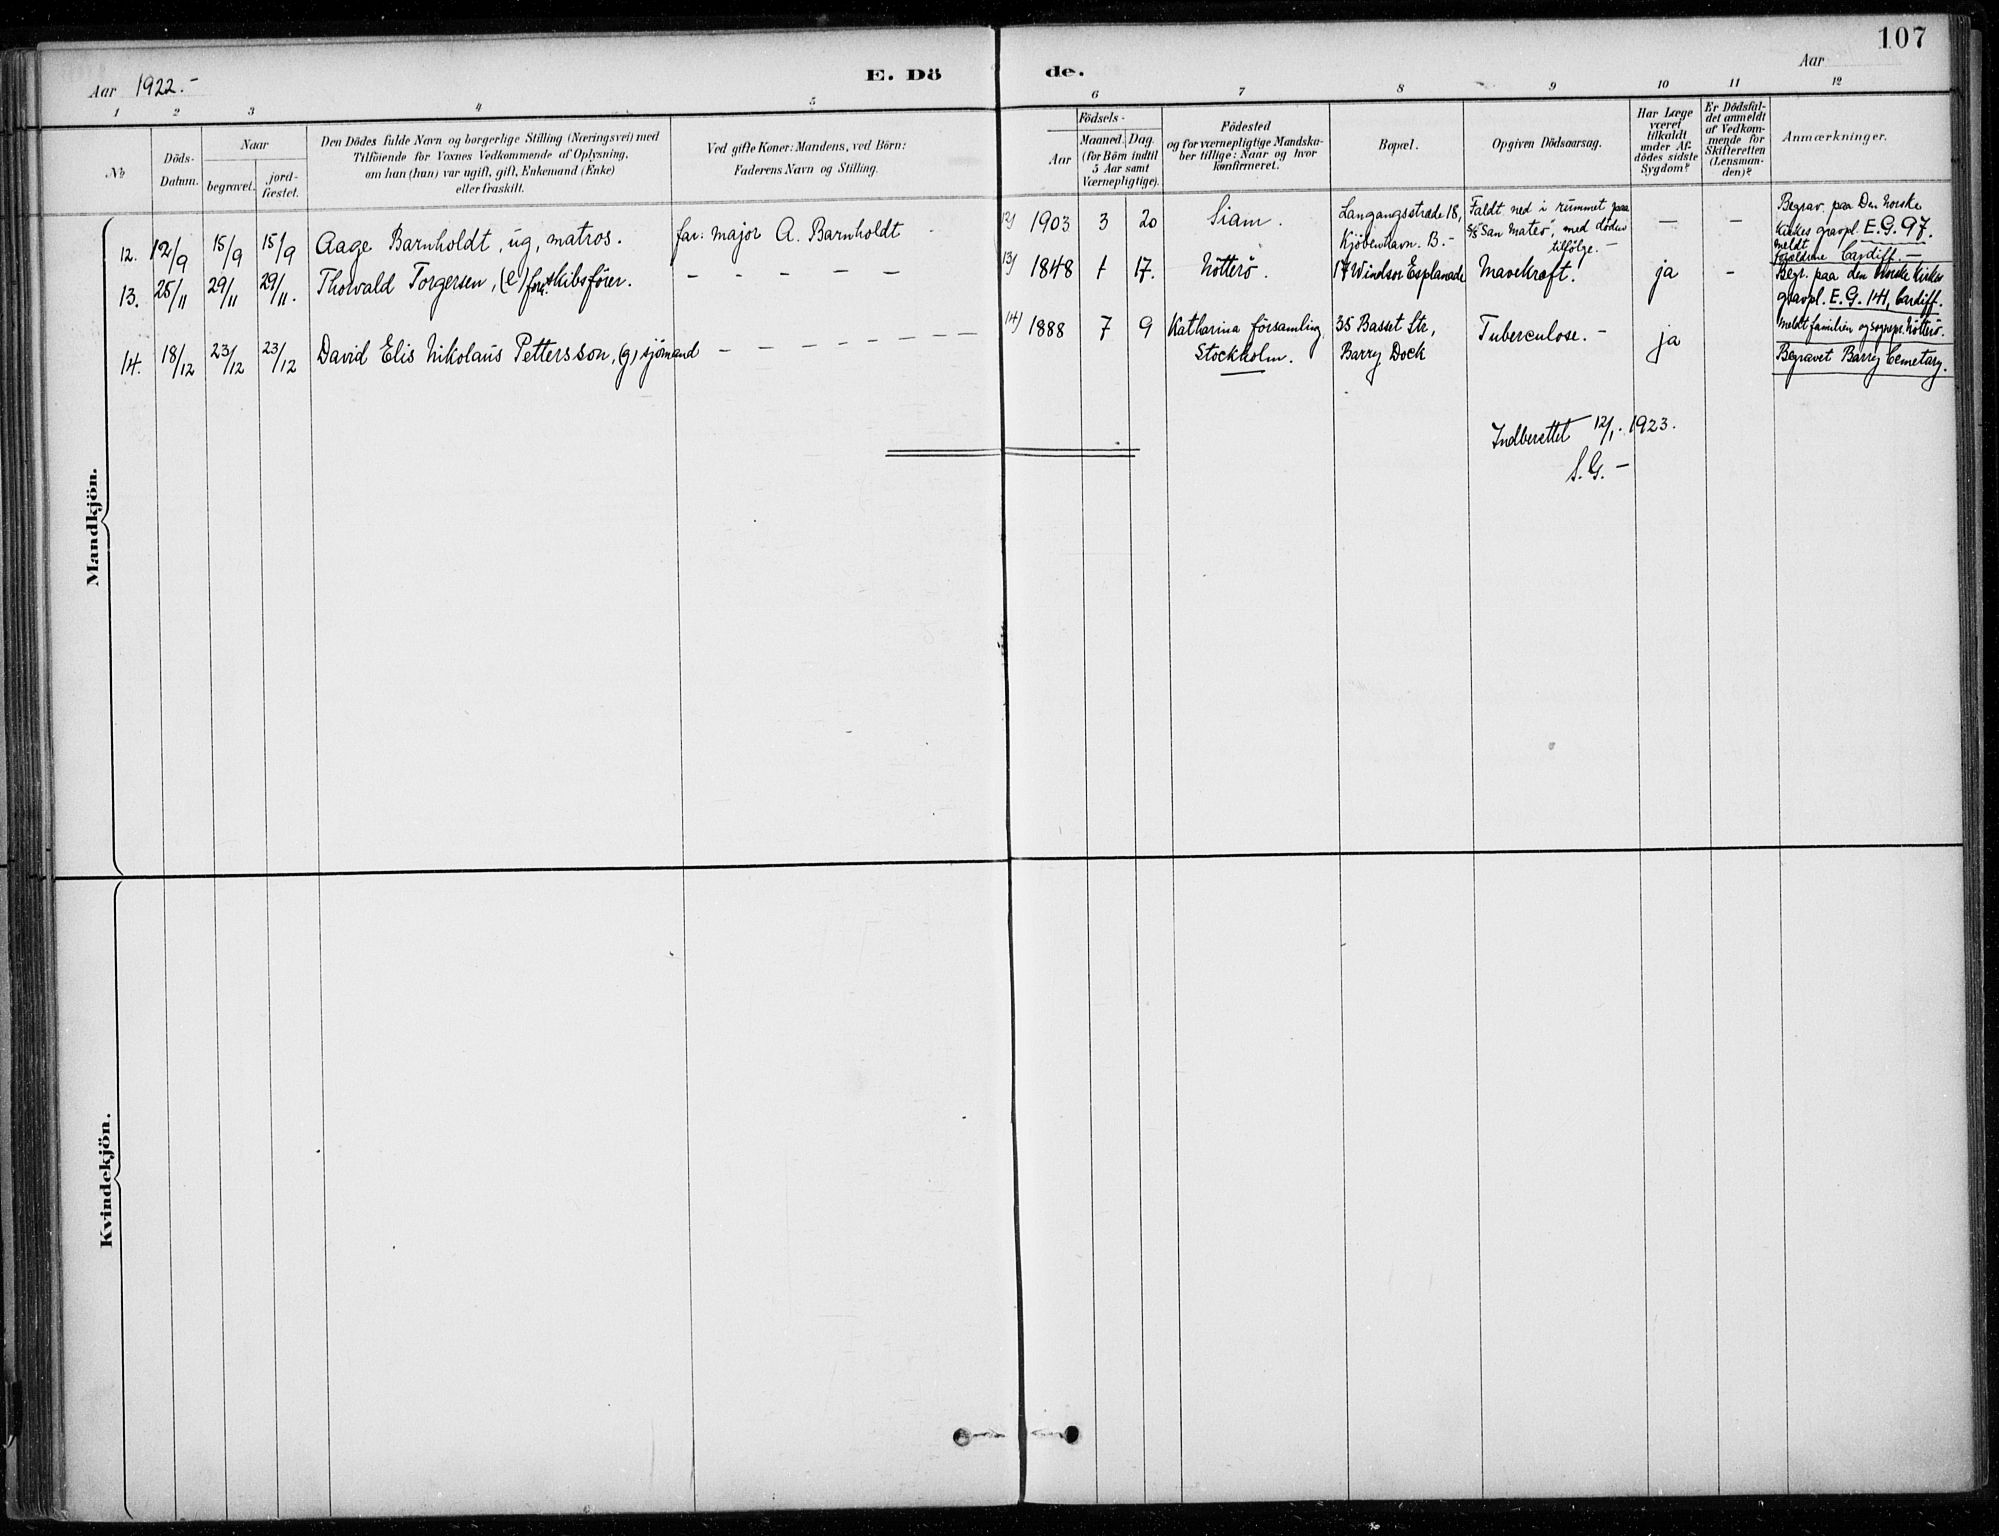 107
Aar 1922.-
E. Dö
de.
Aar
1 2 3 4 5 6 7 8 9 10 11 12
No
Döds-
Datum.
Naar
begravet.
jord-
fæstet.
Den Dödes fulde Navn og borgerlige Stilling (Næringsvei) med
Tilföiende for Voxnes Vedkommende af Oplysning,
om han (hun) var ugift, gift, Enkemand (Enke)
eller fraskilt.
Ved gifte Koner: Mandens, ved Börn:
Faderens Navn og Stilling.
Födsels-
Aar
Maaned. Dag.
(for Börn indtil
5 Aar samt
Værnepligtige).
Födested
og for værnepligtige Mandska-
ber tillige: Naar og hvor
konfirmeret.
Bopæl.
Opgiven Dödsaarsag.
Har Læge
været
tilkaldt
under Af-
dödes sidste
Sygdom?
Er Dödsfal-
det anmeldt
af Vedkom-
mende for
Skifteretten
(Lensman-
den)?
Anmærkninger.
Mandkjön.
12. 12/9 15/9 15/9 Aage Barnholdt, ug, matros. far: major A. Barnholdt
12) 1903 3 20 Siam.
Langangsstræde 18,
Kjöbenhavn. B.-
Faldt ned i rummet paa
S/S "San Mateo", med döden
tilfölge.-
— —
Begrav. paa Den Norske
Kirkes gravpl. E.G. 97.
meldt
forældrene Cardiff.—
13. 25/11 29/11 29/11. Thorvald Torgersen, (e) forh. skibsförer. - - - - -
13) 1848 1 17. Nötterö. 17 Windsor Esplanade Mavekræft! ja -
Begr. paa den Norske Kirkes
gravpl. E.G. 141, Cardiff.
Meldt familien og sognepr. Nötterö.
14. 18/12 23/12 23/12 David Elis Nikolaus Pettersson, (g) sjömand - - - - - - - -
14) 1888 7 9 Katharina församling
Stockholm.
35 Basset Str,
Barry Dock
Tuberculose.- ja
Begravet Barry Cemetary.
Indberettet 12/1. 1923.
S.G.-
Kvindekjön.